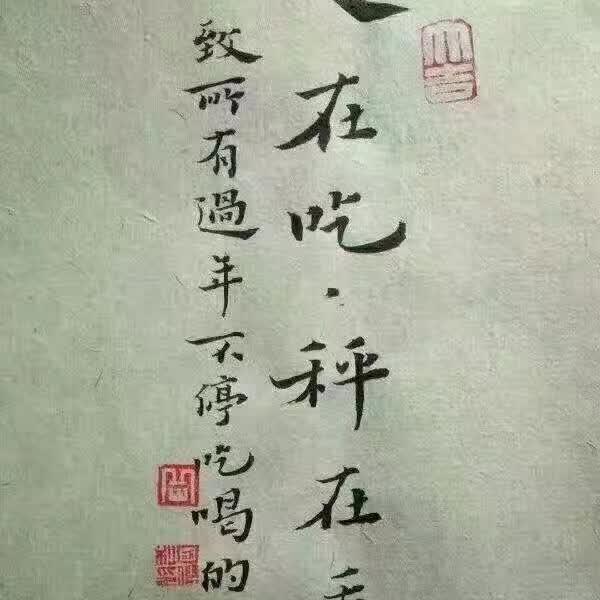 大吉
在吃·秤在
致所有過年不停吃喝的